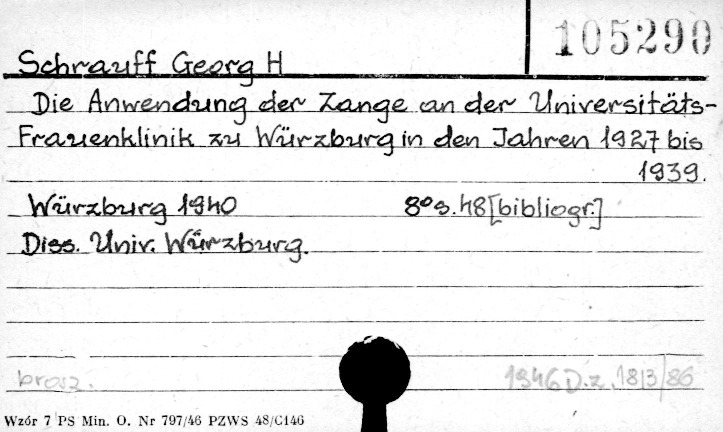 105290
Schrauff Georg H
Die Anwendung der Zange an der Universitäts-
Frauenklinik zu Würzburg in den Jahren 1927 bis
1939.
Würzburg 1940 8º s. 48 [bibliogr.]
Diss. Univ. Würzburg.
brosz. 1946 D. z. 1813/86
Wzór 7 PS Min. O. Nr 797/46 PZWS 48/C146